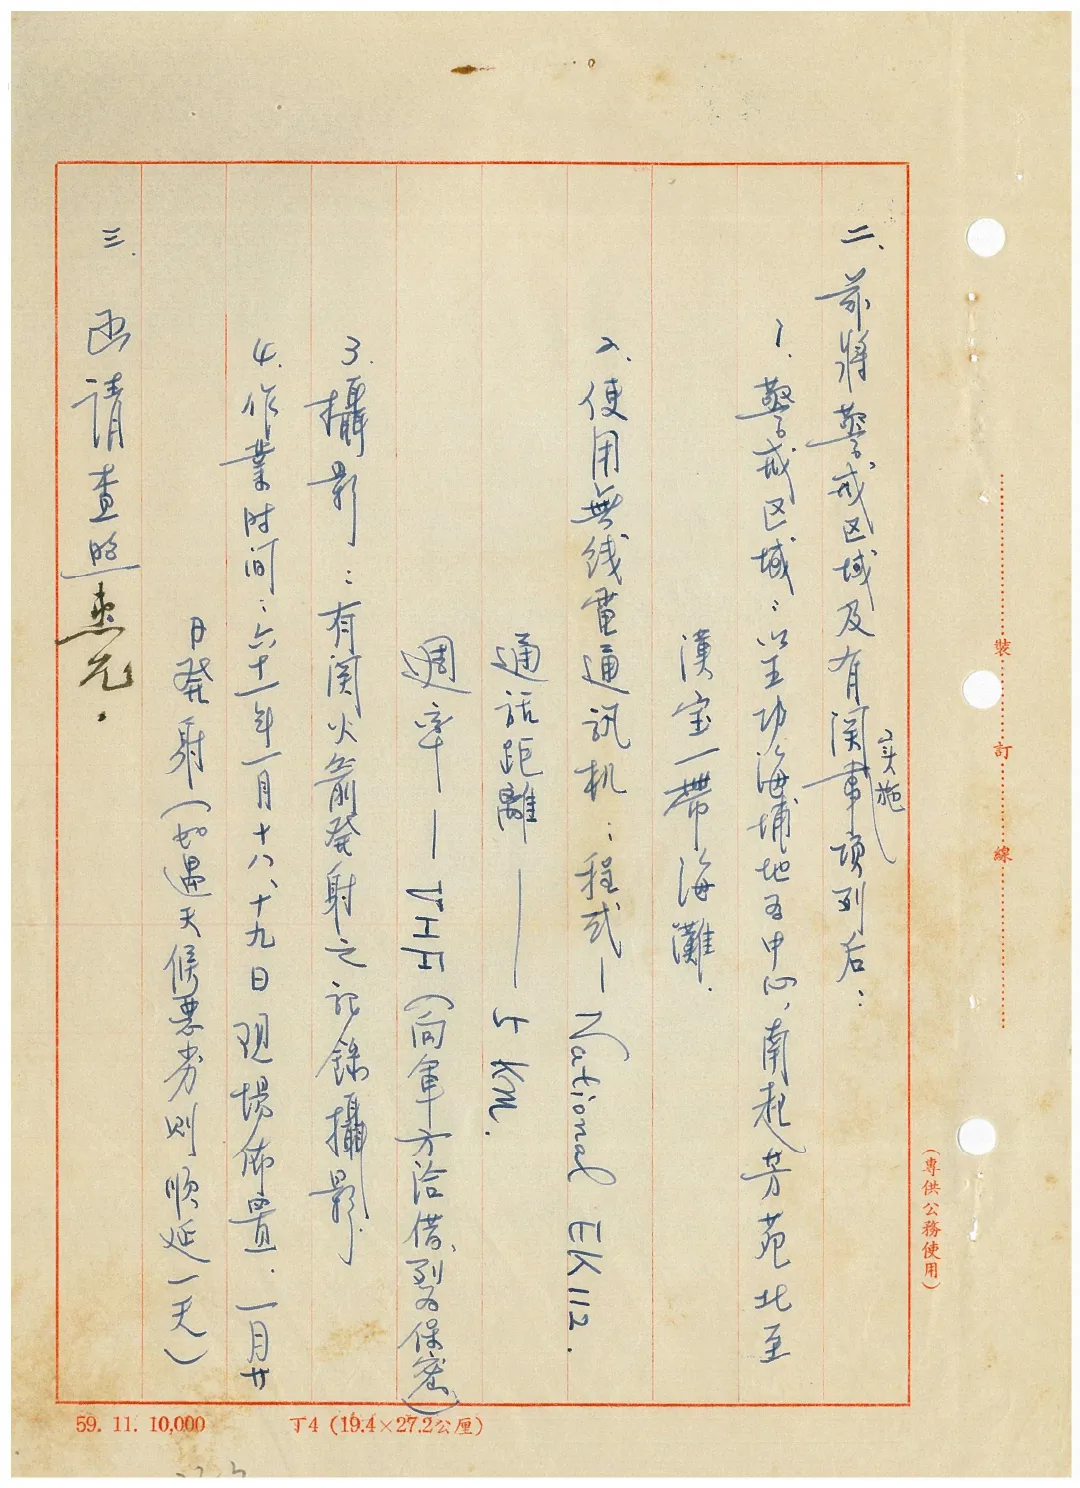 二、茲將警戒区域及有関实施事項列后：
1. 警戒区域：以王功海埔地为中心，南起芳苑北至
漢宝一帶海灘．
2. 使用無线電通訊机：程式—National EK112.
通話距離——5 KM.
週率—VHF（向軍方洽借，列为保密）
3. 攝影：有関火箭發射之記錄攝影
4. 作業时间：六十一年一月十八、十九日現場佈置．一月廿
日發射（如遇天候惡劣則順延一天）
三. 函請查照惠允．
裝
訂
線
（專供公務使用）
59. 11. 10,000
丁4（19.4×27.2公厘）